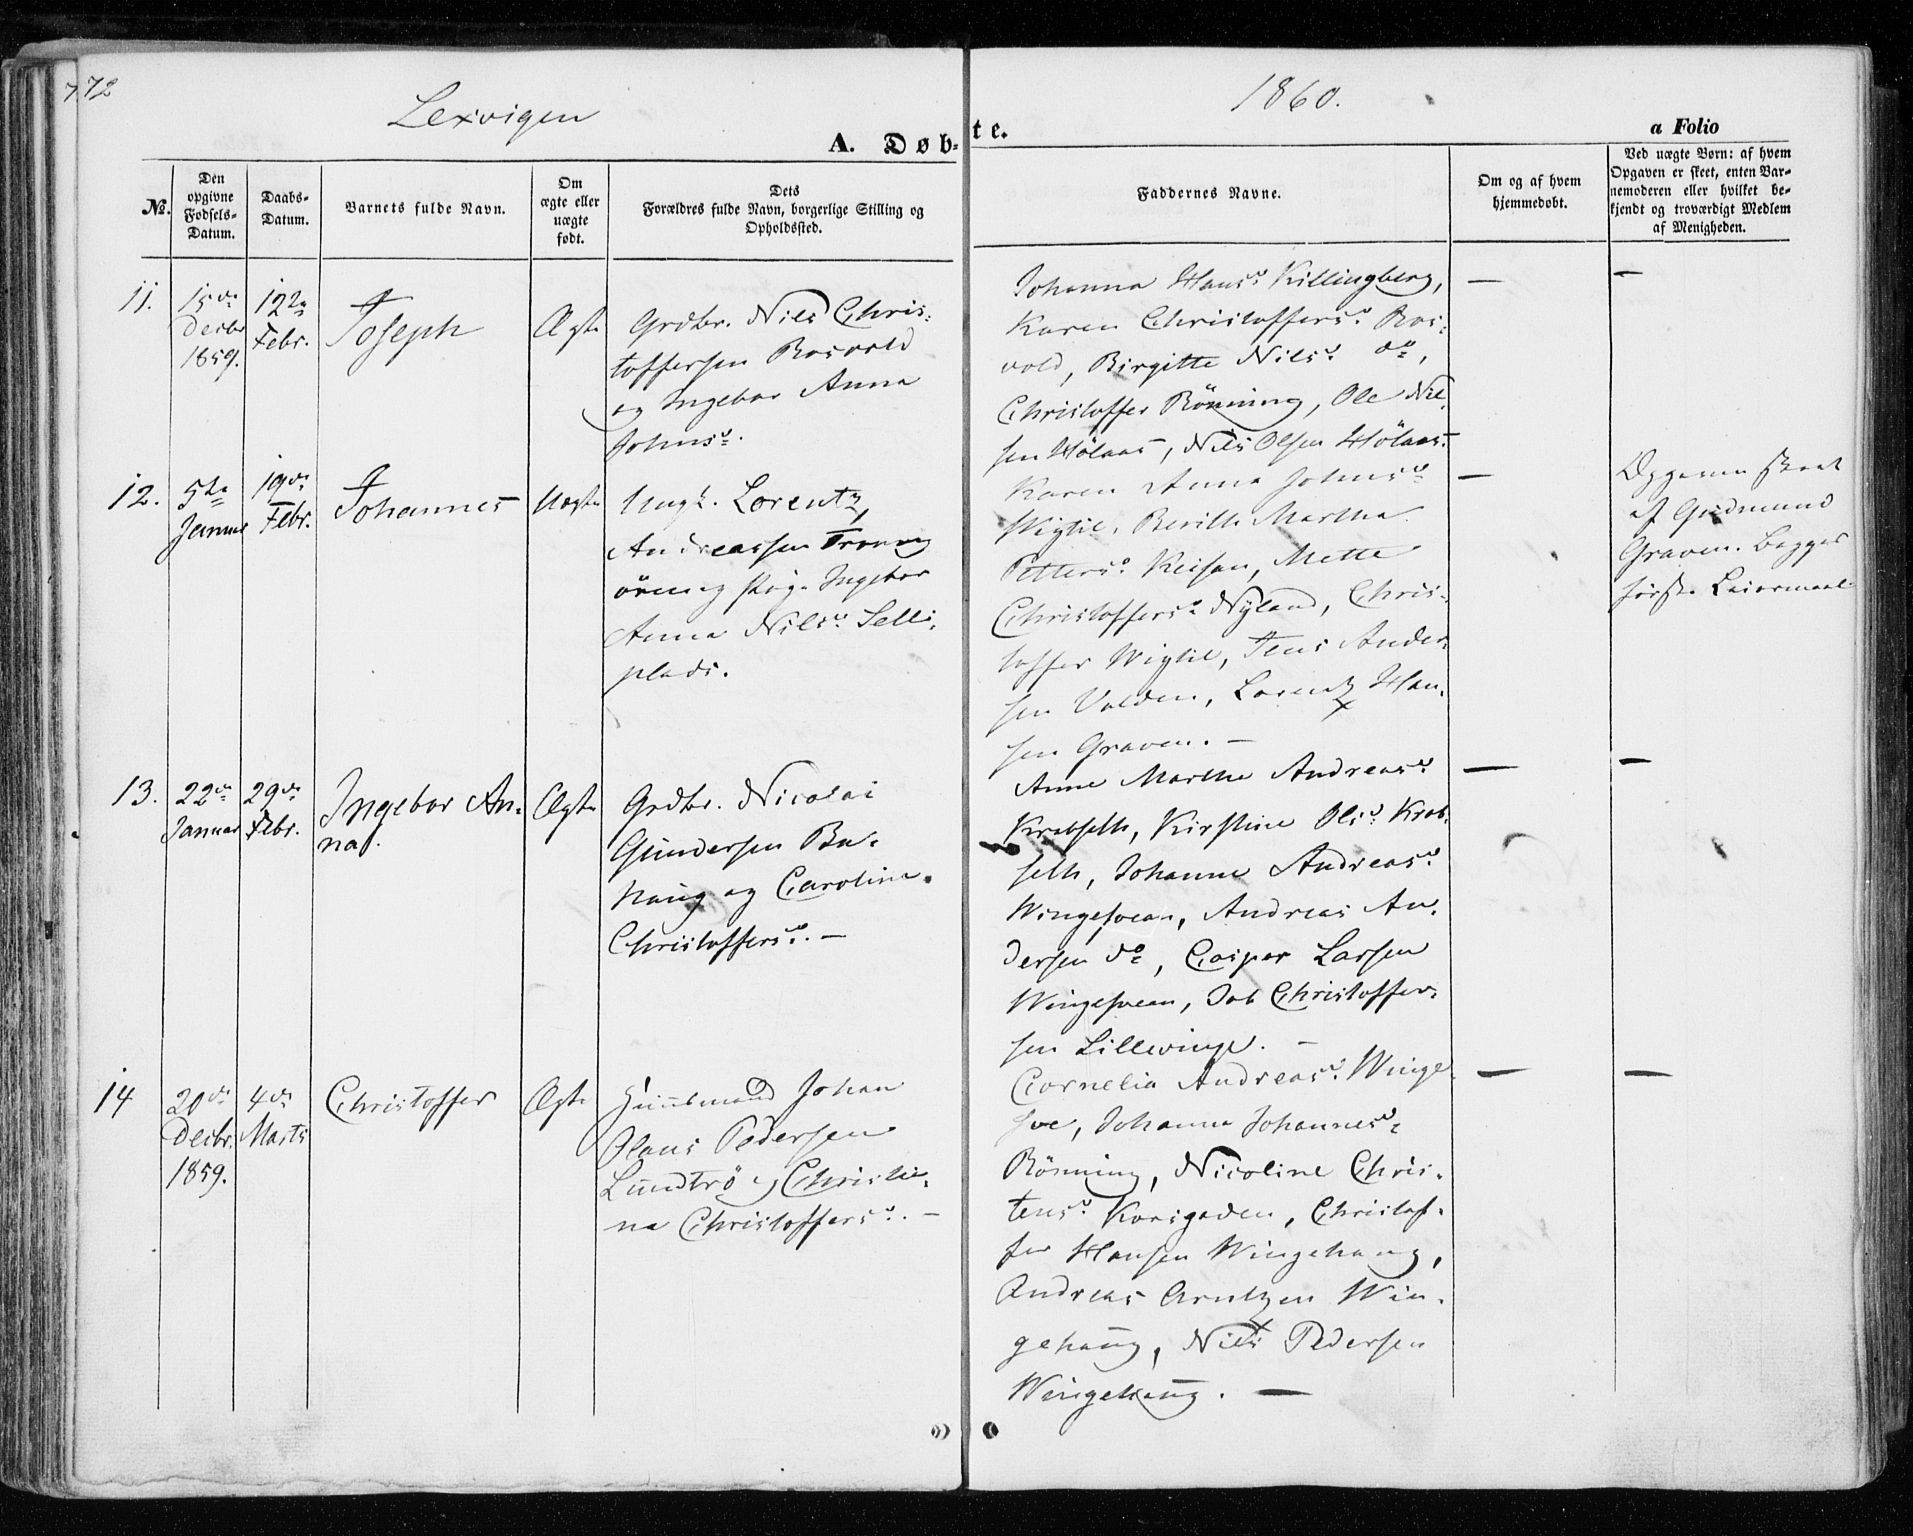 772
Lexvigen
1860.
A. Døb-
te.
a Folio
No.
Den opgivne Fødsels-Datum.
Daabs-Datum.
Barnets fulde Navn.
Om ægte eller uægte født.
Dets Forældres fulde Navn, borgerlige Stilling og Opholdssted.
Faddernes Navne.
Om og af hvem hjemmedøbt.
Ved uægte Børn: af hvem Opgaven er skeet, enten Barnemoderen eller hvilket bekjendt og troværdigt Medlem af Menigheden.
11.
15de
Decbr
1859.
12te
Febr.
Joseph
Ægte
Grdbr. Nils Chris-
toffersen Rosvold
og Ingebor Anna
Johnsd.
Johanna Hansd. Killingberg,
Karen Christoffersd. Ros-
vold, Birgitte Nilsd. do,
Christoffer Rönning, Ole Nil-
sen Hölaas, Nils Olsen Hölaas.
—
—
12.
5te
Januar
19de
Febr.
Johannes
Uægte
Ungk. Lorentz
Andreassen
og Pige Ingebor
Anna Nilsd. Selli-
plads.
Karen Anna Johnsd.
Wigtil, Berith Martha
Pettersd. Reisan, Mette
Christoffersd. Nyland, Chris-
toffer Wigtil, Jens Ander-
sen Valden, Lorentz Han-
sen Graven. —
—
Opgaven skeet
af Gudmund
Graven. Begges
første Leiermaal
13.
22de
Januar
29de
Febr.
Ingebor An-
na.
Ægte
Grdbr. Nicolai
Gundersen Ba-
haug og Caroline
Christoffersd. —
Anne Martha Andreasd.
Krabseth, Kirstine Olsd. Krab-
seth, Johanne Andreasd.
Wingesvean, Andreas An-
dersen do, Casper Larsen
Wingesvean, Job Christoffer-
sen Lillewinge. —
—
—
14
20de
Decbr.
1859.
4de
Marts
Christoffer
Ægte
Huusmand Johan
Olaus Pedersen
Lundtrö og Christia-
na Christoffersd. —
Cornelia Andreasd. Winge-
sve, Johanna Johannesd.
Rönning, Nicoline Chris-
tensd. Korsgaden, Christof-
fer Hansen Wingehaug,
Andreas Arntzen Win-
gehaug, Nils Pedersen
Wingehaug. —
—
—